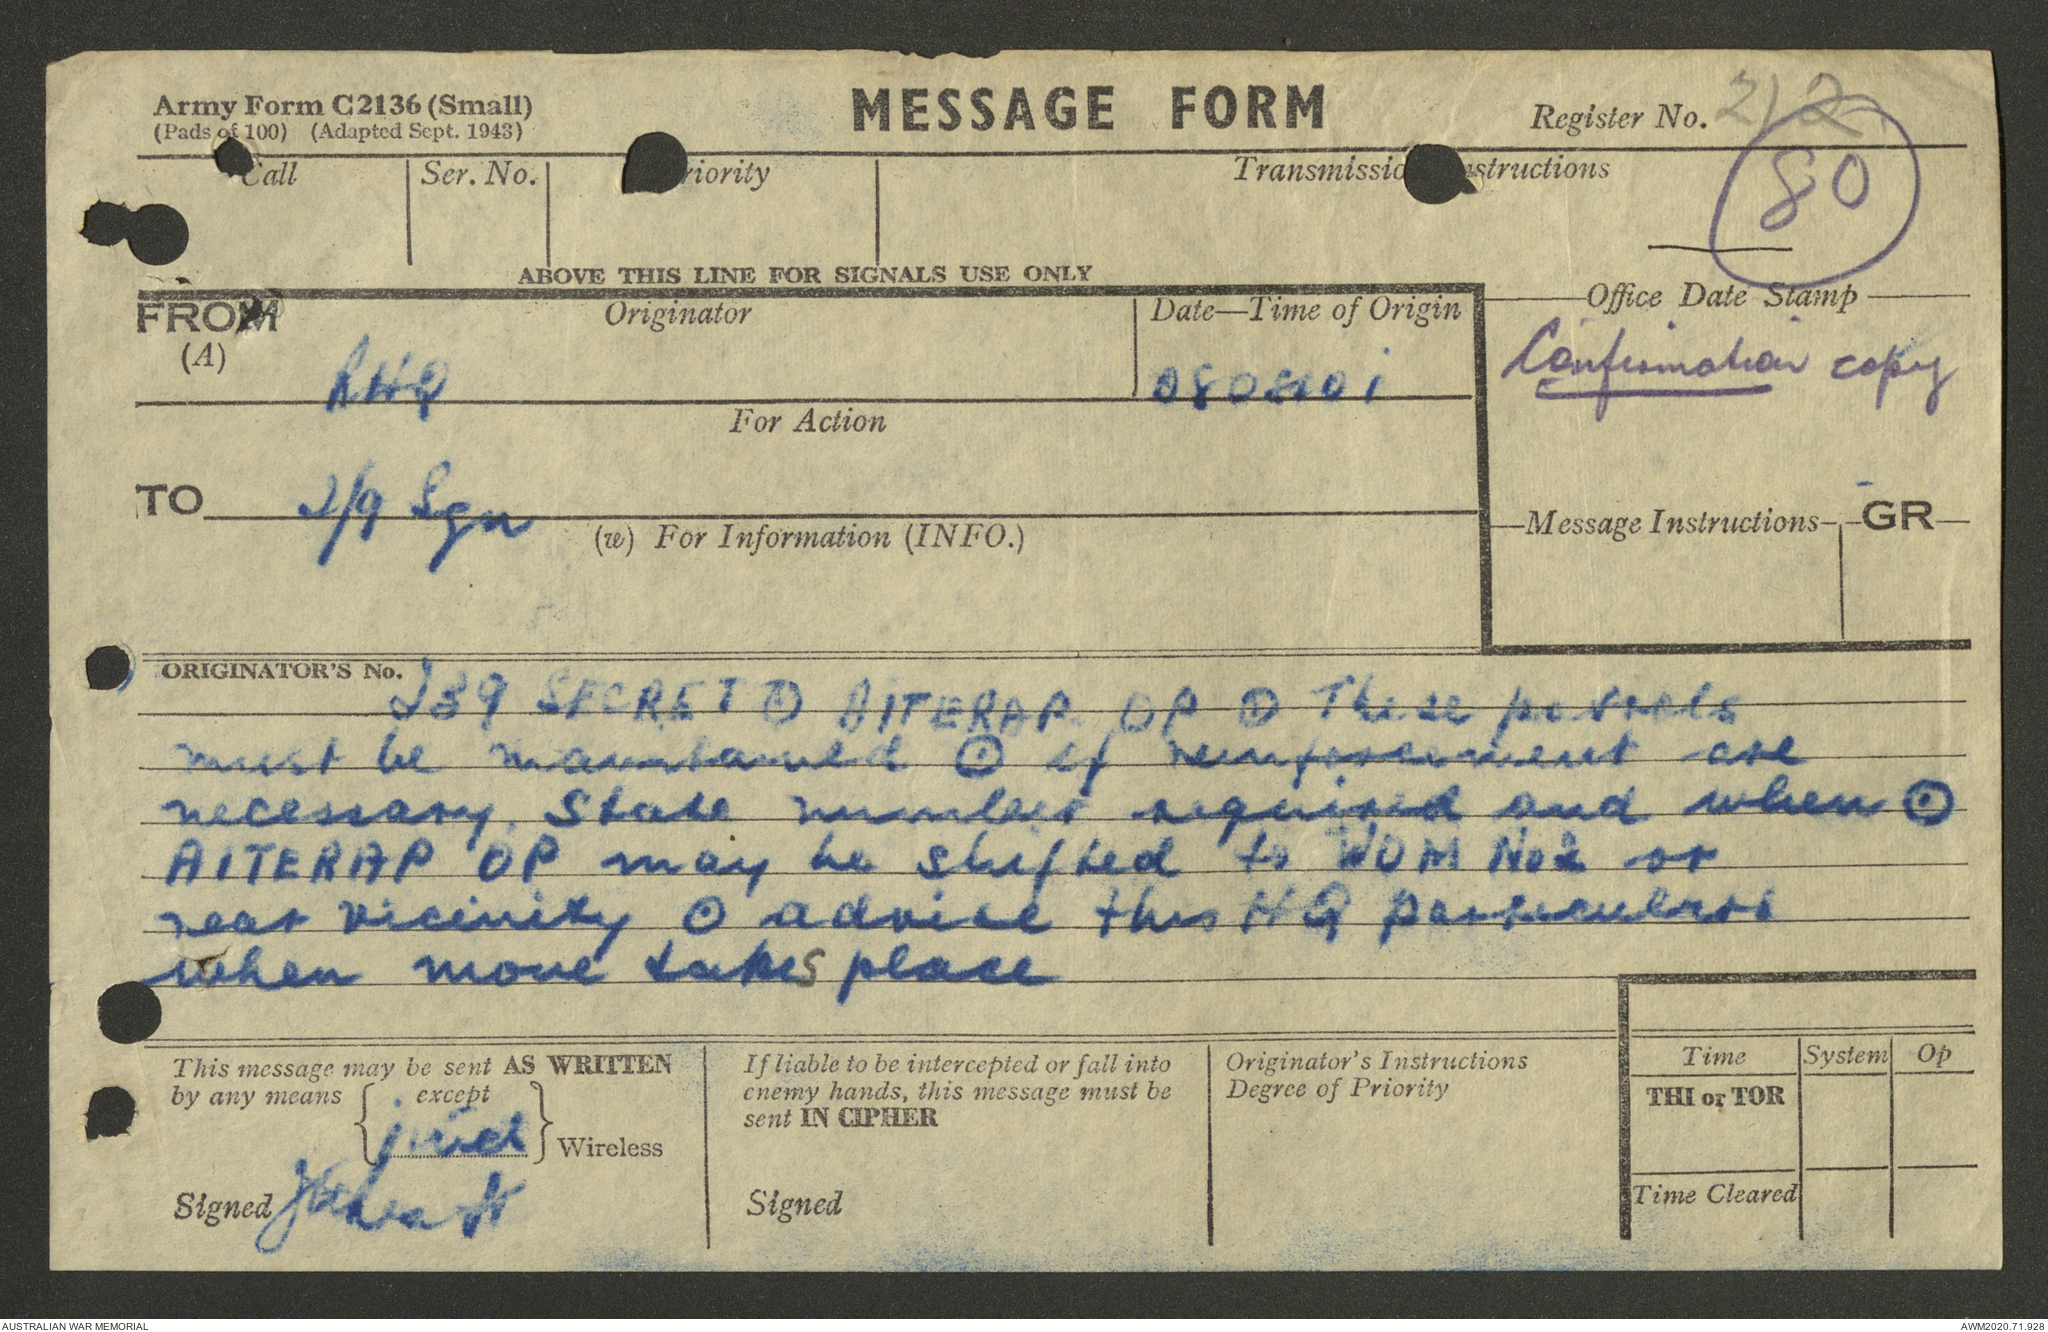 Army Form C2136 (Small)
(Pads of 100) (Adapted Sept. 1943)
MESSAGE FORM
Register No. 212
80
Call Ser. No. riority Transmissio structions
ABOVE THIS LINE FOR SIGNALS USE ONLY
FROM
(A)
Originator
Date—Time of Origin
Office Date Stamp
RHQ
Confirmation copy
For Action
TO 2/9 Sqn
(w) For Information (INFO.)
Message Instructions GR
ORIGINATOR'S No.
J39 SECRET ⊙ AITERAP OP ⊙ These patrols
must be maintained ⊙ if reinforcement are
necessary state number required and when ⊙
AITERAP OP may be shifted to WOM No2 or
near vicinity ⊙ advise this HQ particulars
when move takes place
This message may be sent AS WRITTEN
by any means except
Wireless
Signed
If liable to be intercepted or fall into
enemy hands, this message must be
sent IN CIPHER
Signed
Originator's Instructions
Degree of Priority
Time System Op
THI or TOR
Time Cleared
AUSTRALIAN WAR MEMORIAL
AWM2020.71.928